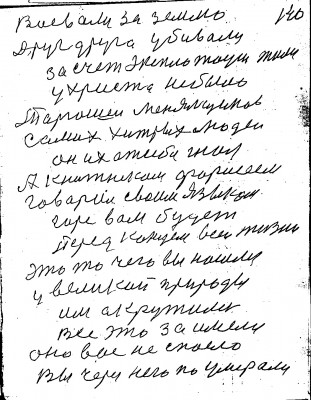 140
Воевали за землю
друг друга убивали
за счет эксплотации жили
у христа не было
Торгашей менялщиков
самих хитрых людей
он их от себя гнал
А Книжникам фарисеем
говорил своим языком
горе вам будет
Перед концем всей жизни
это то чего вы нашли
у великой природы
им окружились
Все это заимели
оно вас не спасло
Вы через него поумерали